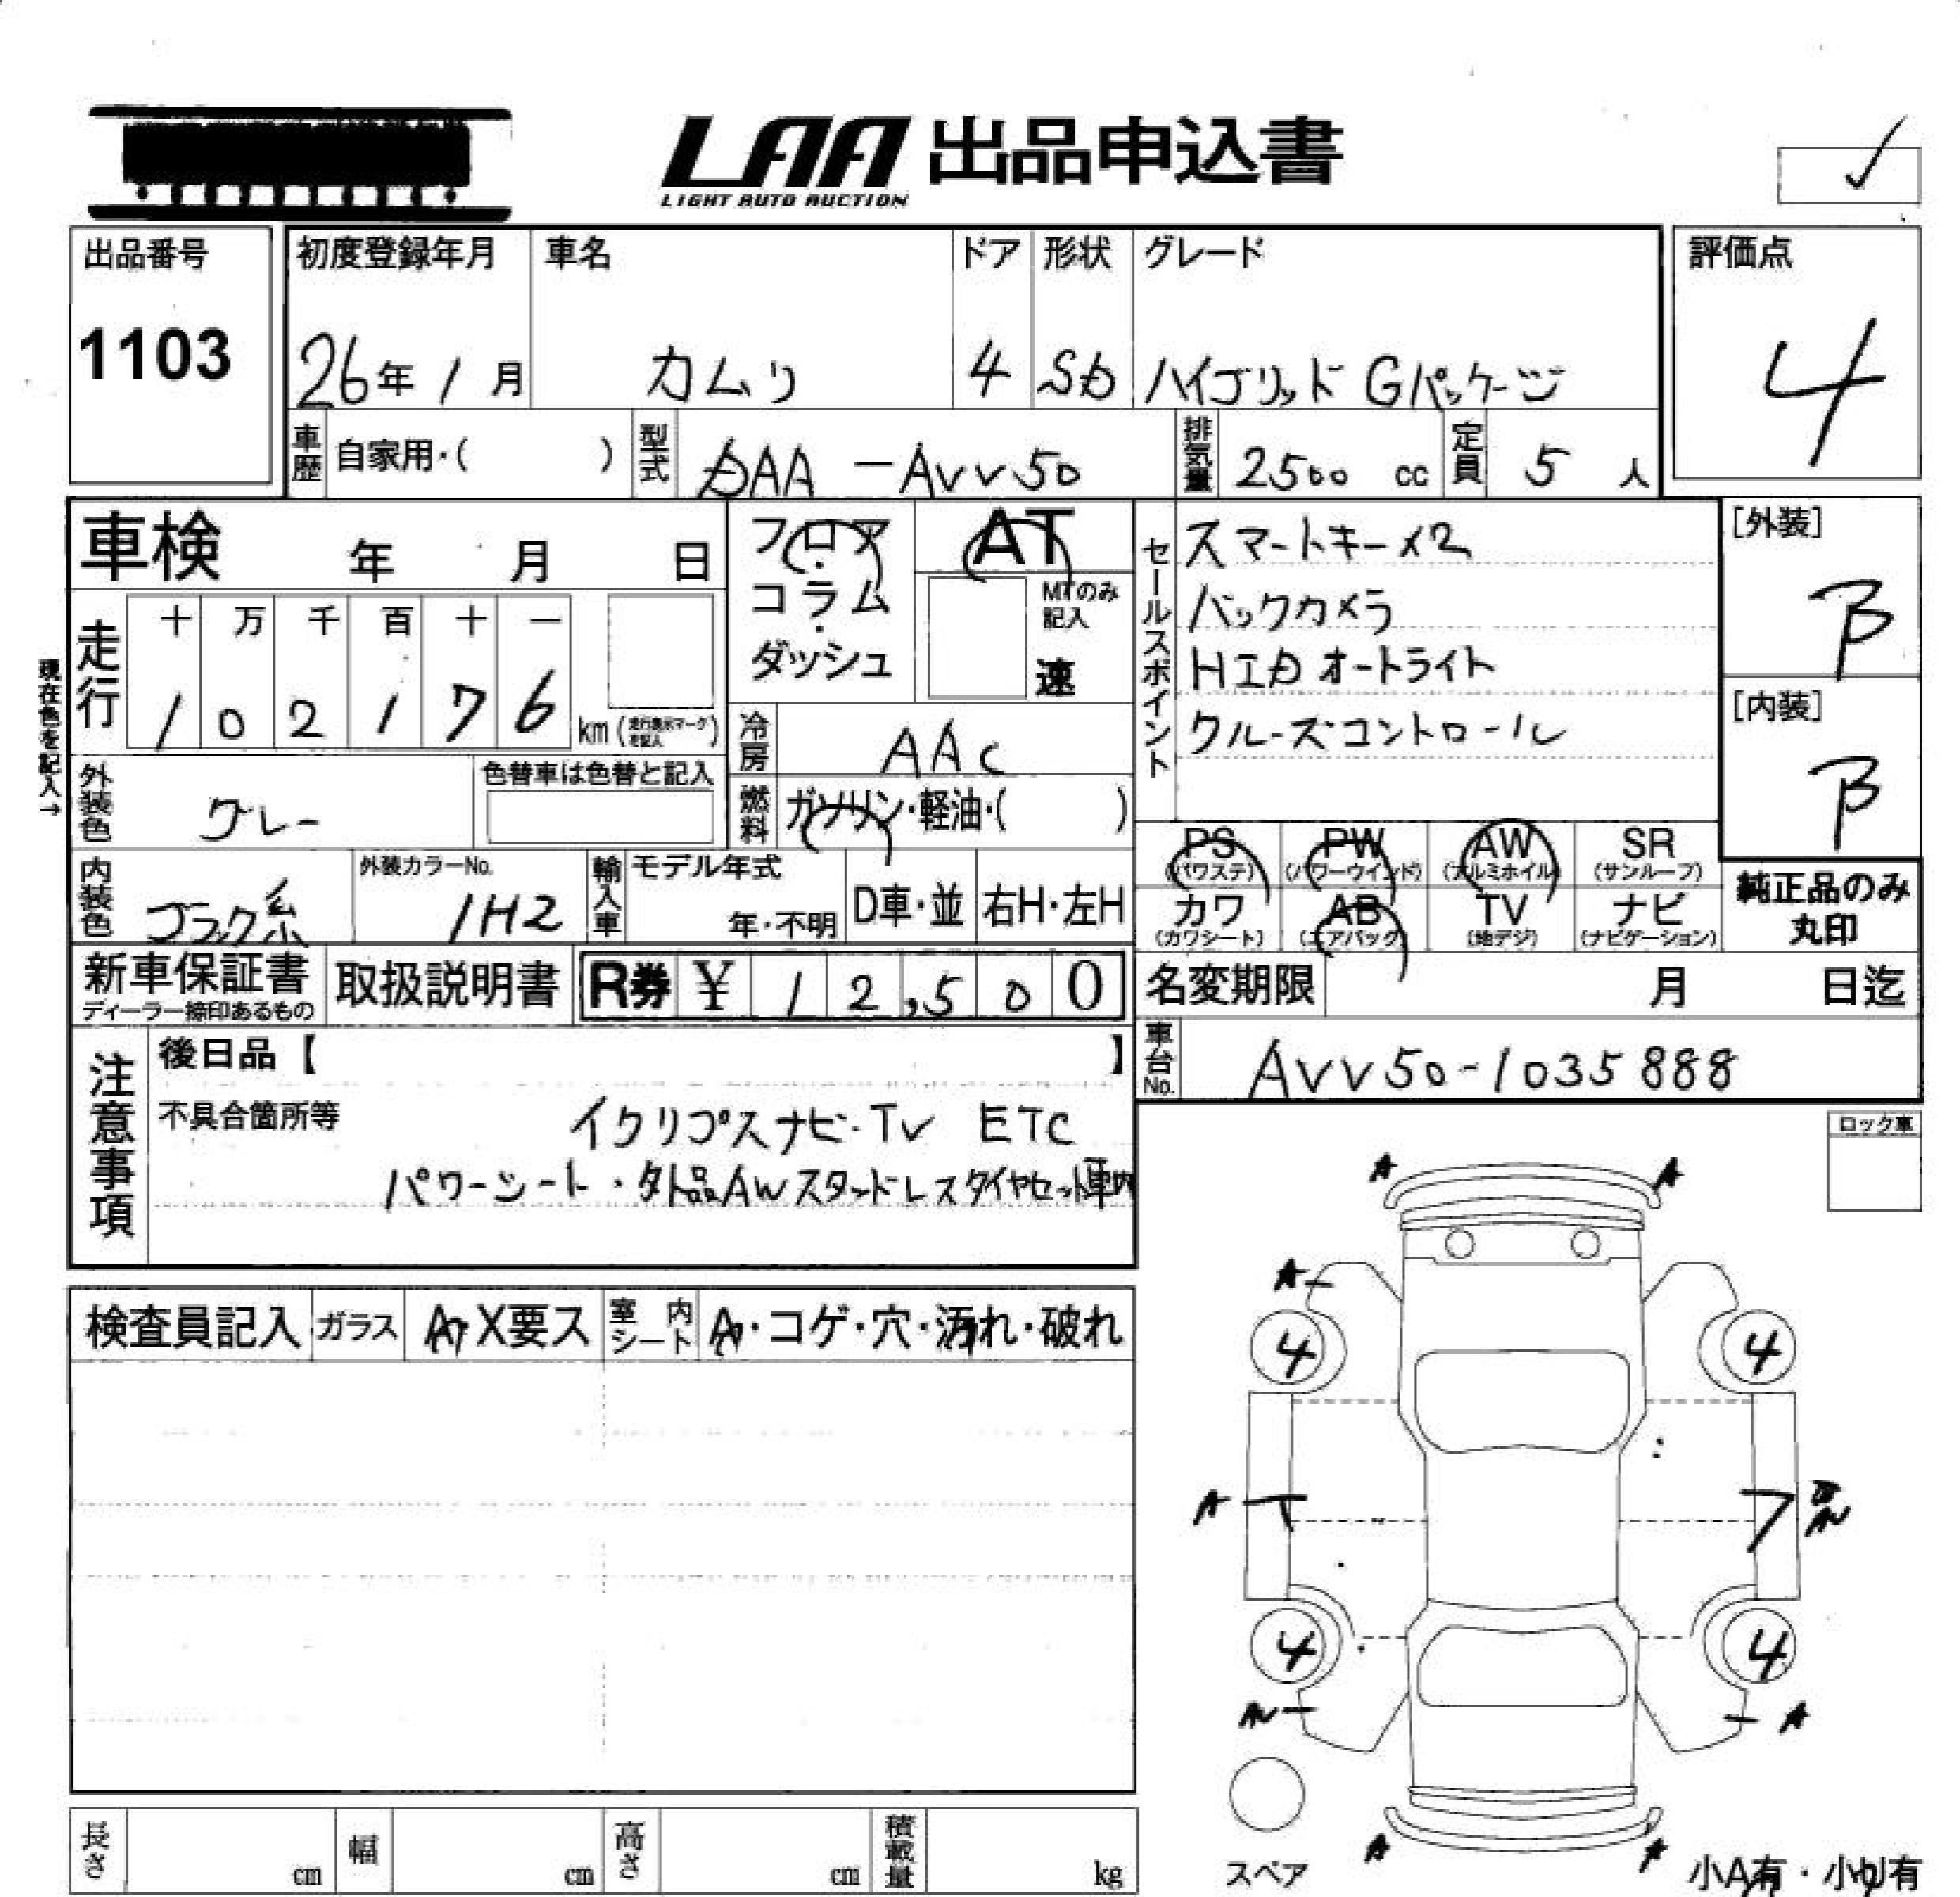 LAA 出品申込書
LIGHT AUTO AUCTION
出品番号
1103
初度登録年月 車名 ドア 形状 グレード
26年 1月 カムリ 4 SD ハイブリッド Gパッケージ
評価点
4
車歴 自家用・( ) 型式 DAA-AVV50 排気量 2500 cc 定員 5 人
車検 年 月 日
フロア・コラム・ダッシュ
AT
MTのみ記入
速
セールスポイント
スマートキー×2
バックカメラ
HID オートライト
クルーズコントロール
[外装]
B
[内装]
B
現在色を記入→
走行 十 万 千 百 十 一
1 0 2 1 7 6 km (走行表示マークを記入)
冷房 AAC
外装色 グレー
色替車は色替と記入
燃料 ガソリン・軽油・( )
内装色 ブラック系
外装カラーNo.
1H2
輸入車 モデル年式
年・不明 D車・並 右H・左H
PS (パワステ) PW (パワーウインド) AW (アルミホイル) SR (サンルーフ)
カワ (カワシート) AB (エアバッグ) TV (地デジ) ナビ (ナビゲーション)
純正品のみ
丸印
新車保証書
ディーラー捺印あるもの
取扱説明書
R券 ¥ 1 2,5 0 0
名変期限 月 日迄
車台No. AVV50-1035888
注意事項
後日品【 】
不具合箇所等 イクリプスナビ・TV ETC
パワーシート・外品AWスタッドレスタイヤセット車内
ロック車
検査員記入 ガラス A・X要ス 室内シート A・コゲ・穴・汚れ・破れ
A A
A
4 4
A
A
4 4
A
A A
スペア
小A有・小U有
長さ cm 幅 cm 高さ cm 積載量 kg